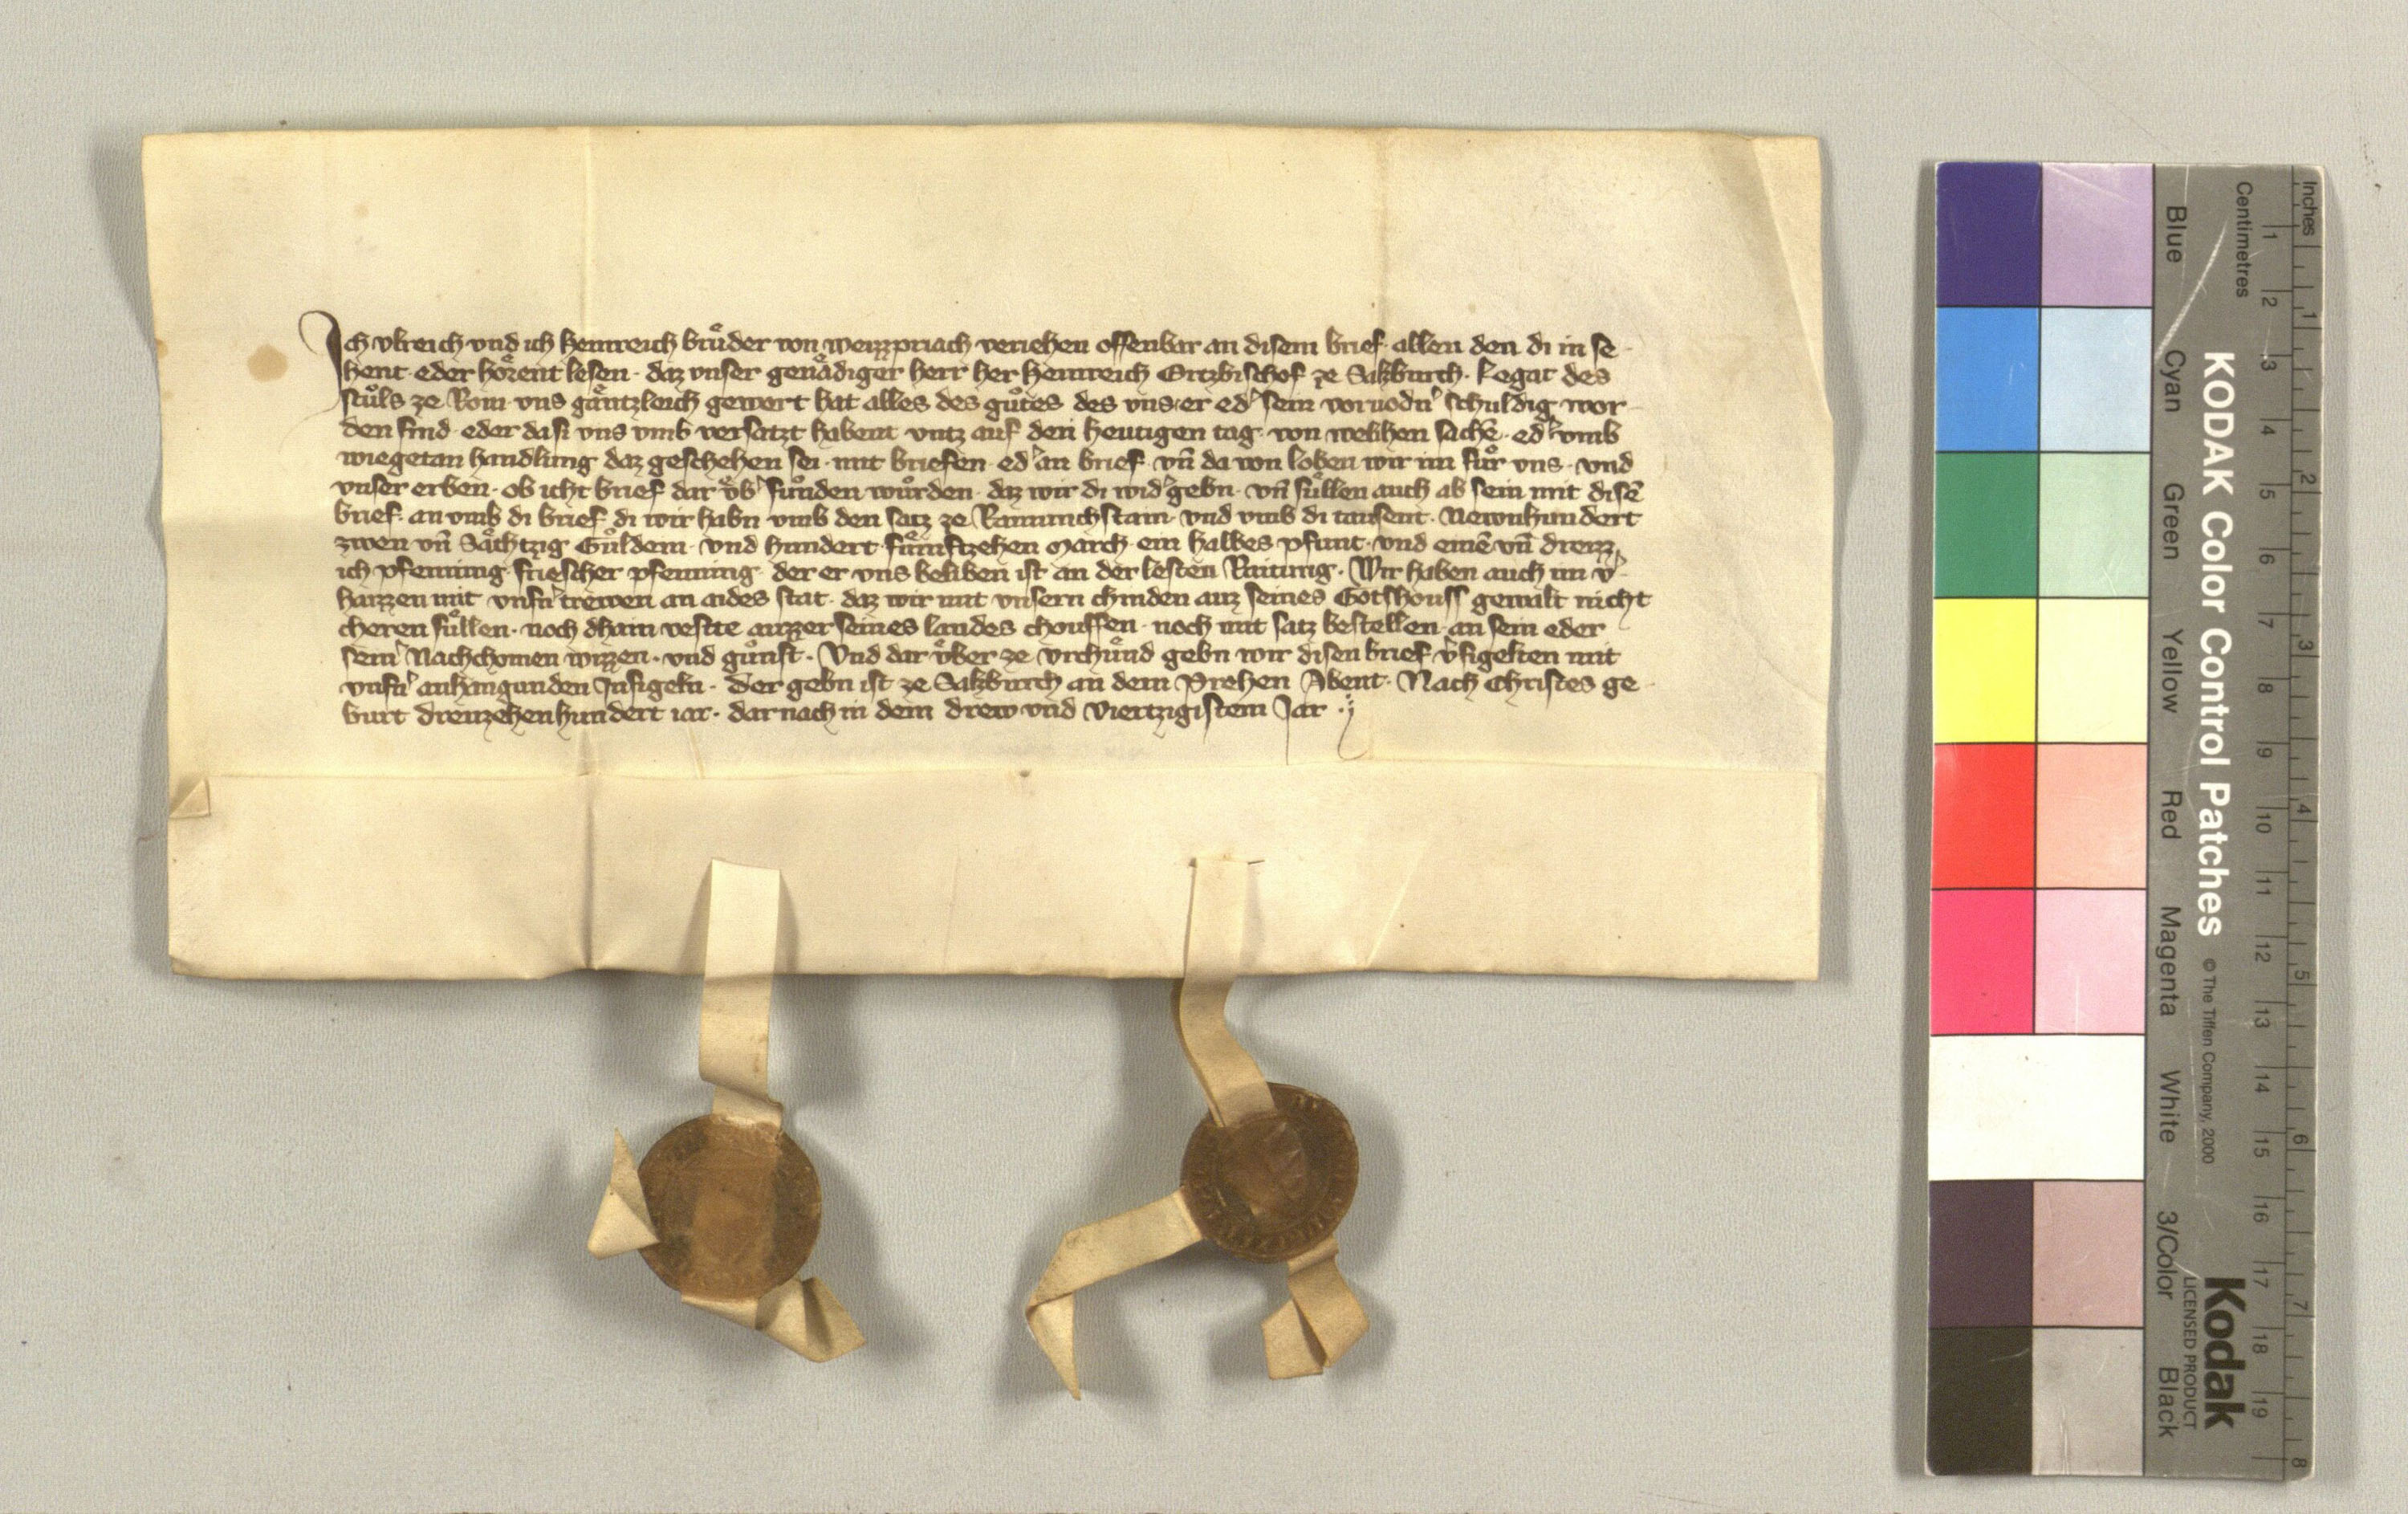 Ich vlreich vnd ich Heinreich bruͤder von weizzpriach veriehen offenbar an disem brief · allen den di in se-
hent · eder hoͤrent lesen · daz vnser genaͤdiger herr her Heinreich Ertzbischof ze Saltzburch · Legat des
stuͦls ze Rom · vns gaͤntzleich gewert hat alles des guͦtes des vns er ed' sein voruodn' schuldig wor-
den sind · eder da si vns vmb versatzt habent vntz auf den heutigen tag · von welhen sachē · ed' vmb
wiegetan handlung daz geschehen sei · mit briefen · ed' an brief · vn̄ da von loben wir im fuͤr vns · vnd
vnser erben · ob icht brief dar vͤb' funden wuͤrden · daz wir di wid' gebn · vn̄ suͤllen auch ab sein mit disē
brief · an vmb di brief · di wir habn vmb den satz ze Ramunchstain · vnd vmb di tausent · Newnhundert
zwen vn̄ Saͤchtzig Guͤldein · vnd hundert fuͤmftzehen march ein halbes pfunt · vnd einē vn̄ dreizz
ich pfenning friescher pfenning · der er vns beliben ist an der lesten Raitung · Wir haben auch im v'-
haizzen mit vnsn' trewen an aides stat · daz wir mit vnsern chinden auz seines Gotshouss gewalt nicht
cheren suͤllen · noch dhain veste auzzer seines landes chouffen · noch mit satz bestellen · an sein eder
sein' Nachchomen wizzen · vnd guͦnst · Vnd dar vͤber ze vrchuͤnd gebn wir disen brief v'sigelten mit
vnsn' anhangunden Insigeln · Der gebn ist ze Saltzburch an dem Prehen Abent · Nach Christes ge-
burt dreuzehenhundert iar · dar nach in dem drew vnd Viertzigistem Jar
KODAK Color Control Patches
© The Tiffen Company, 2000
Kodak
LICENSED PRODUCT
Inches
1 2 3 4 5 6 7 8
Centimetres
1 2 3 4 5 6 7 8 9 10 11 12 13 14 15 16 17 18 19
Blue Cyan Green Yellow Red Magenta White 3/Color Black